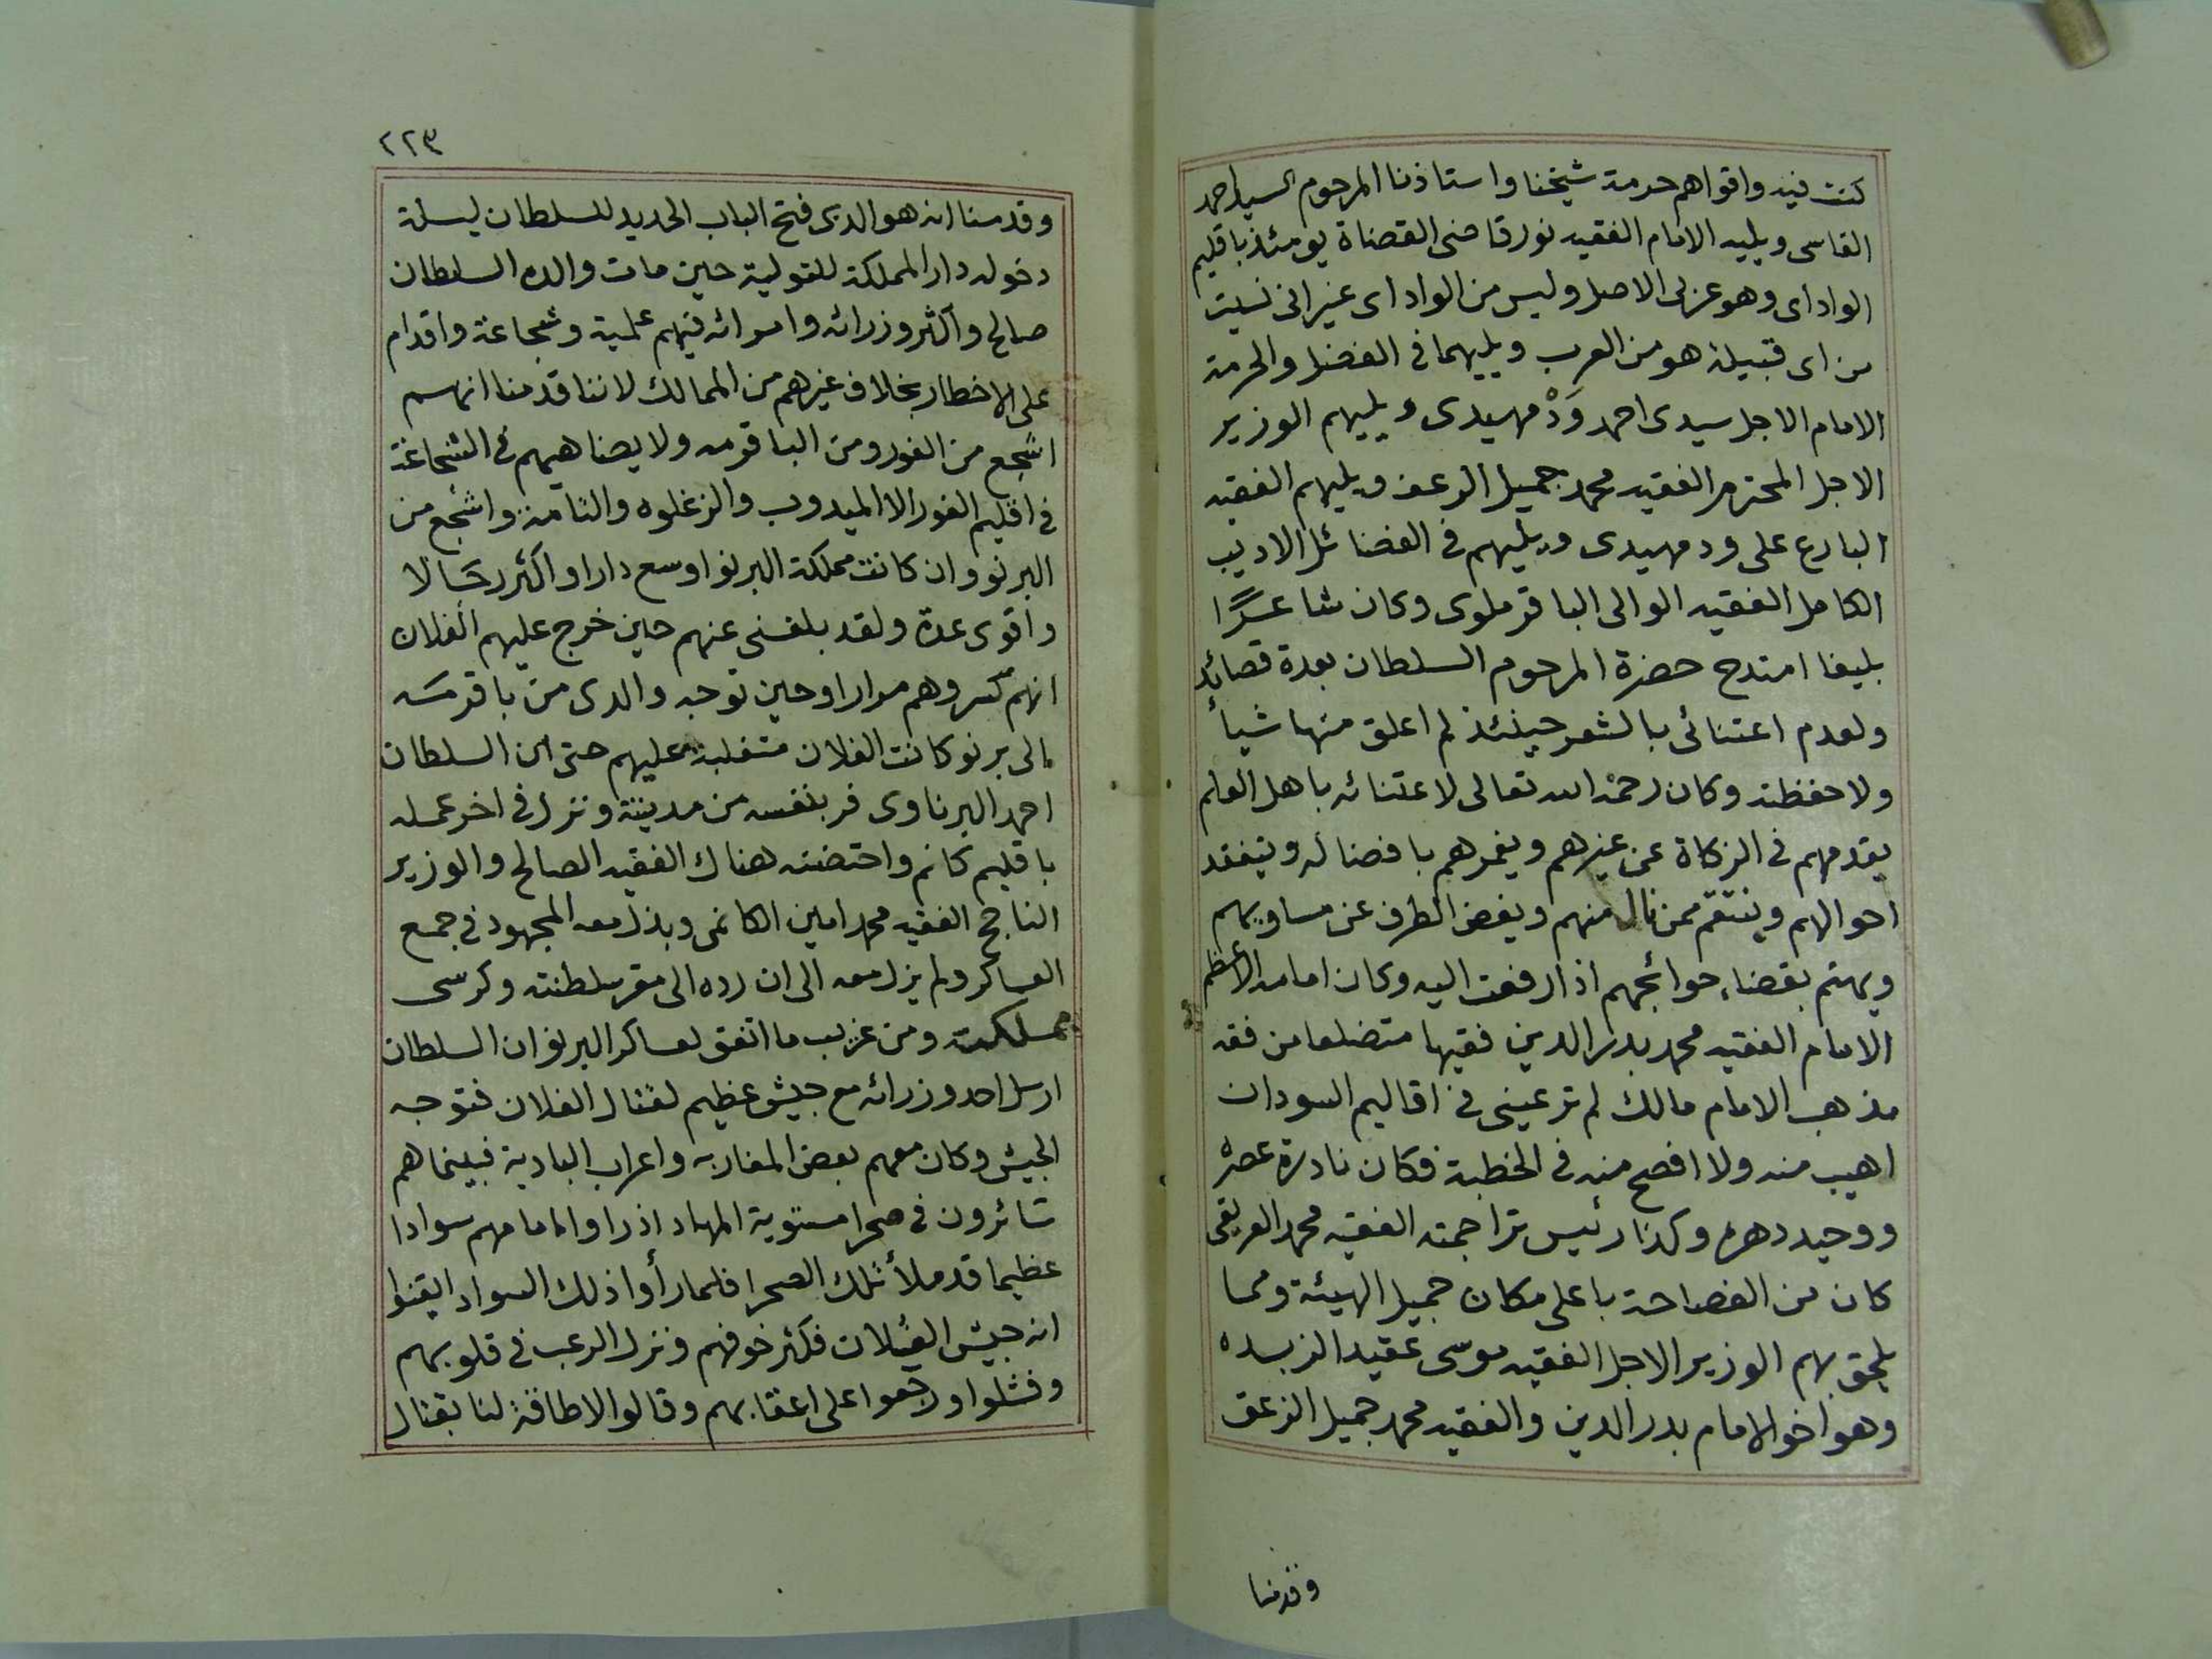 كنت فيه واقواهم حرمة شيخنا واستاذنا المرحوم السيد احمد
الفاسى ويليه الامام الفقيه نور قاضى القضاة يومئذ باقليم
الواداى وهو عربى الاصل وليس من الواداى غير انى نسيت
من اى قبيلة هو من العرب ويليهما فى الفضل والحرمة
الامام الاجل سيدى احمد وَدْ مهيدى ويليهم الوزير
الاجل المحترم الفقيه محمد جميل الرعف ويليهم الفقيه
البارع على ود مهيدى ويليهم فى الفضائل الاديب
الكامل الفقيه الوالى الباقرملوى وكان شاعرًا
بليغا امتدح حضرة المرحوم السلطان بعدة قصائد
ولعدم اعتنائى بالشعر حينئذ لم اعلق منها شيأ
ولا حفظته وكان رحمه الله تعالى لاعتنائه باهل العلم
يقدمهم فى الزكاة عن غيرهم ويغمرهم بافضاله ويتفقد
احوالهم وينتقم ممن نال منهم ويغض الطرف عن مساويهم
ويهتم بقضاء حوائجهم اذا رفعت اليه وكان امامه الاعظم
الامام الفقيه محمد بدر الدين فقيها متضلعا من فقه
مذهب الامام مالك لم تر عينى فى اقاليم السودان
اهيب منه ولا افصح منه فى الخطبة فكان نادرة عصره
ووحيد دهره وكذا رئيس تراجمته الفقيه محمد العريقى
كان من الفصاحة باعلى مكان جميل الهيئة ومما
يلحق بهم الوزير الاجل الفقيه موسى عقيد الزبده
وهو اخو الامام بدر الدين والفقيه محمد جميل الزعق
وقدمنا
٢٢٣
وقدمنا انه هو الذى فتح الباب الحديد للسلطان ليلة
دخوله دار المملكة للتولية حين مات والده السلطان
صالح واكثر وزرائه وامرائه فيهم علمية وشجاعة واقدام
على الاخطار بخلاف غيرهم من الممالك لاننا قدمنا انهم
اشجع من الفور ومن الباقرمه ولا يضاهيهم فى الشجاعة
فى اقليم الفور الا الميدوب والزغلوه والتامة واشجع من
البرنو وان كانت مملكة البرنو اوسع دارا واكثر رجالا
واقوى عدة ولقد بلغنى عنهم حين خرج عليهم الفلان
انهم كسروهم مرارا وحين توجه والدى من باقرمه
الى برنو كانت الفلان متغلبة عليهم حتى ان السلطان
احمد البرناوى فر بنفسه من مدينته ونزل فى اخر عمله
باقليم كانم واحتضنه هناك الفقيه الصالح والوزير
الناجح الفقيه محمد امين الكانمى وبذل معه المجهود فى جمع
العساكر ولم يزل معه الى ان رده الى مقر سلطنته وكرسى
مملكته ومن غريب ما اتفق لعساكر البرنو ان السلطان
ارسل احد وزرائه مع جيش عظيم لقتال الفلان فتوجه
الجيش وكان معهم بعض المغاربه واعراب البادية فبينما هم
سائرون فى صحرا مستوية المهاد اذ راوا امامهم سوادا
عظيما قد ملأ تلك الصحرا فلما رأوا ذلك السواد ايقنوا
انه جيش الفلان فكثر خوفهم ونزل الرعب فى قلوبهم
وفشلوا ورجعوا على اعقابهم وقالوا لاطاقة لنا بقتال